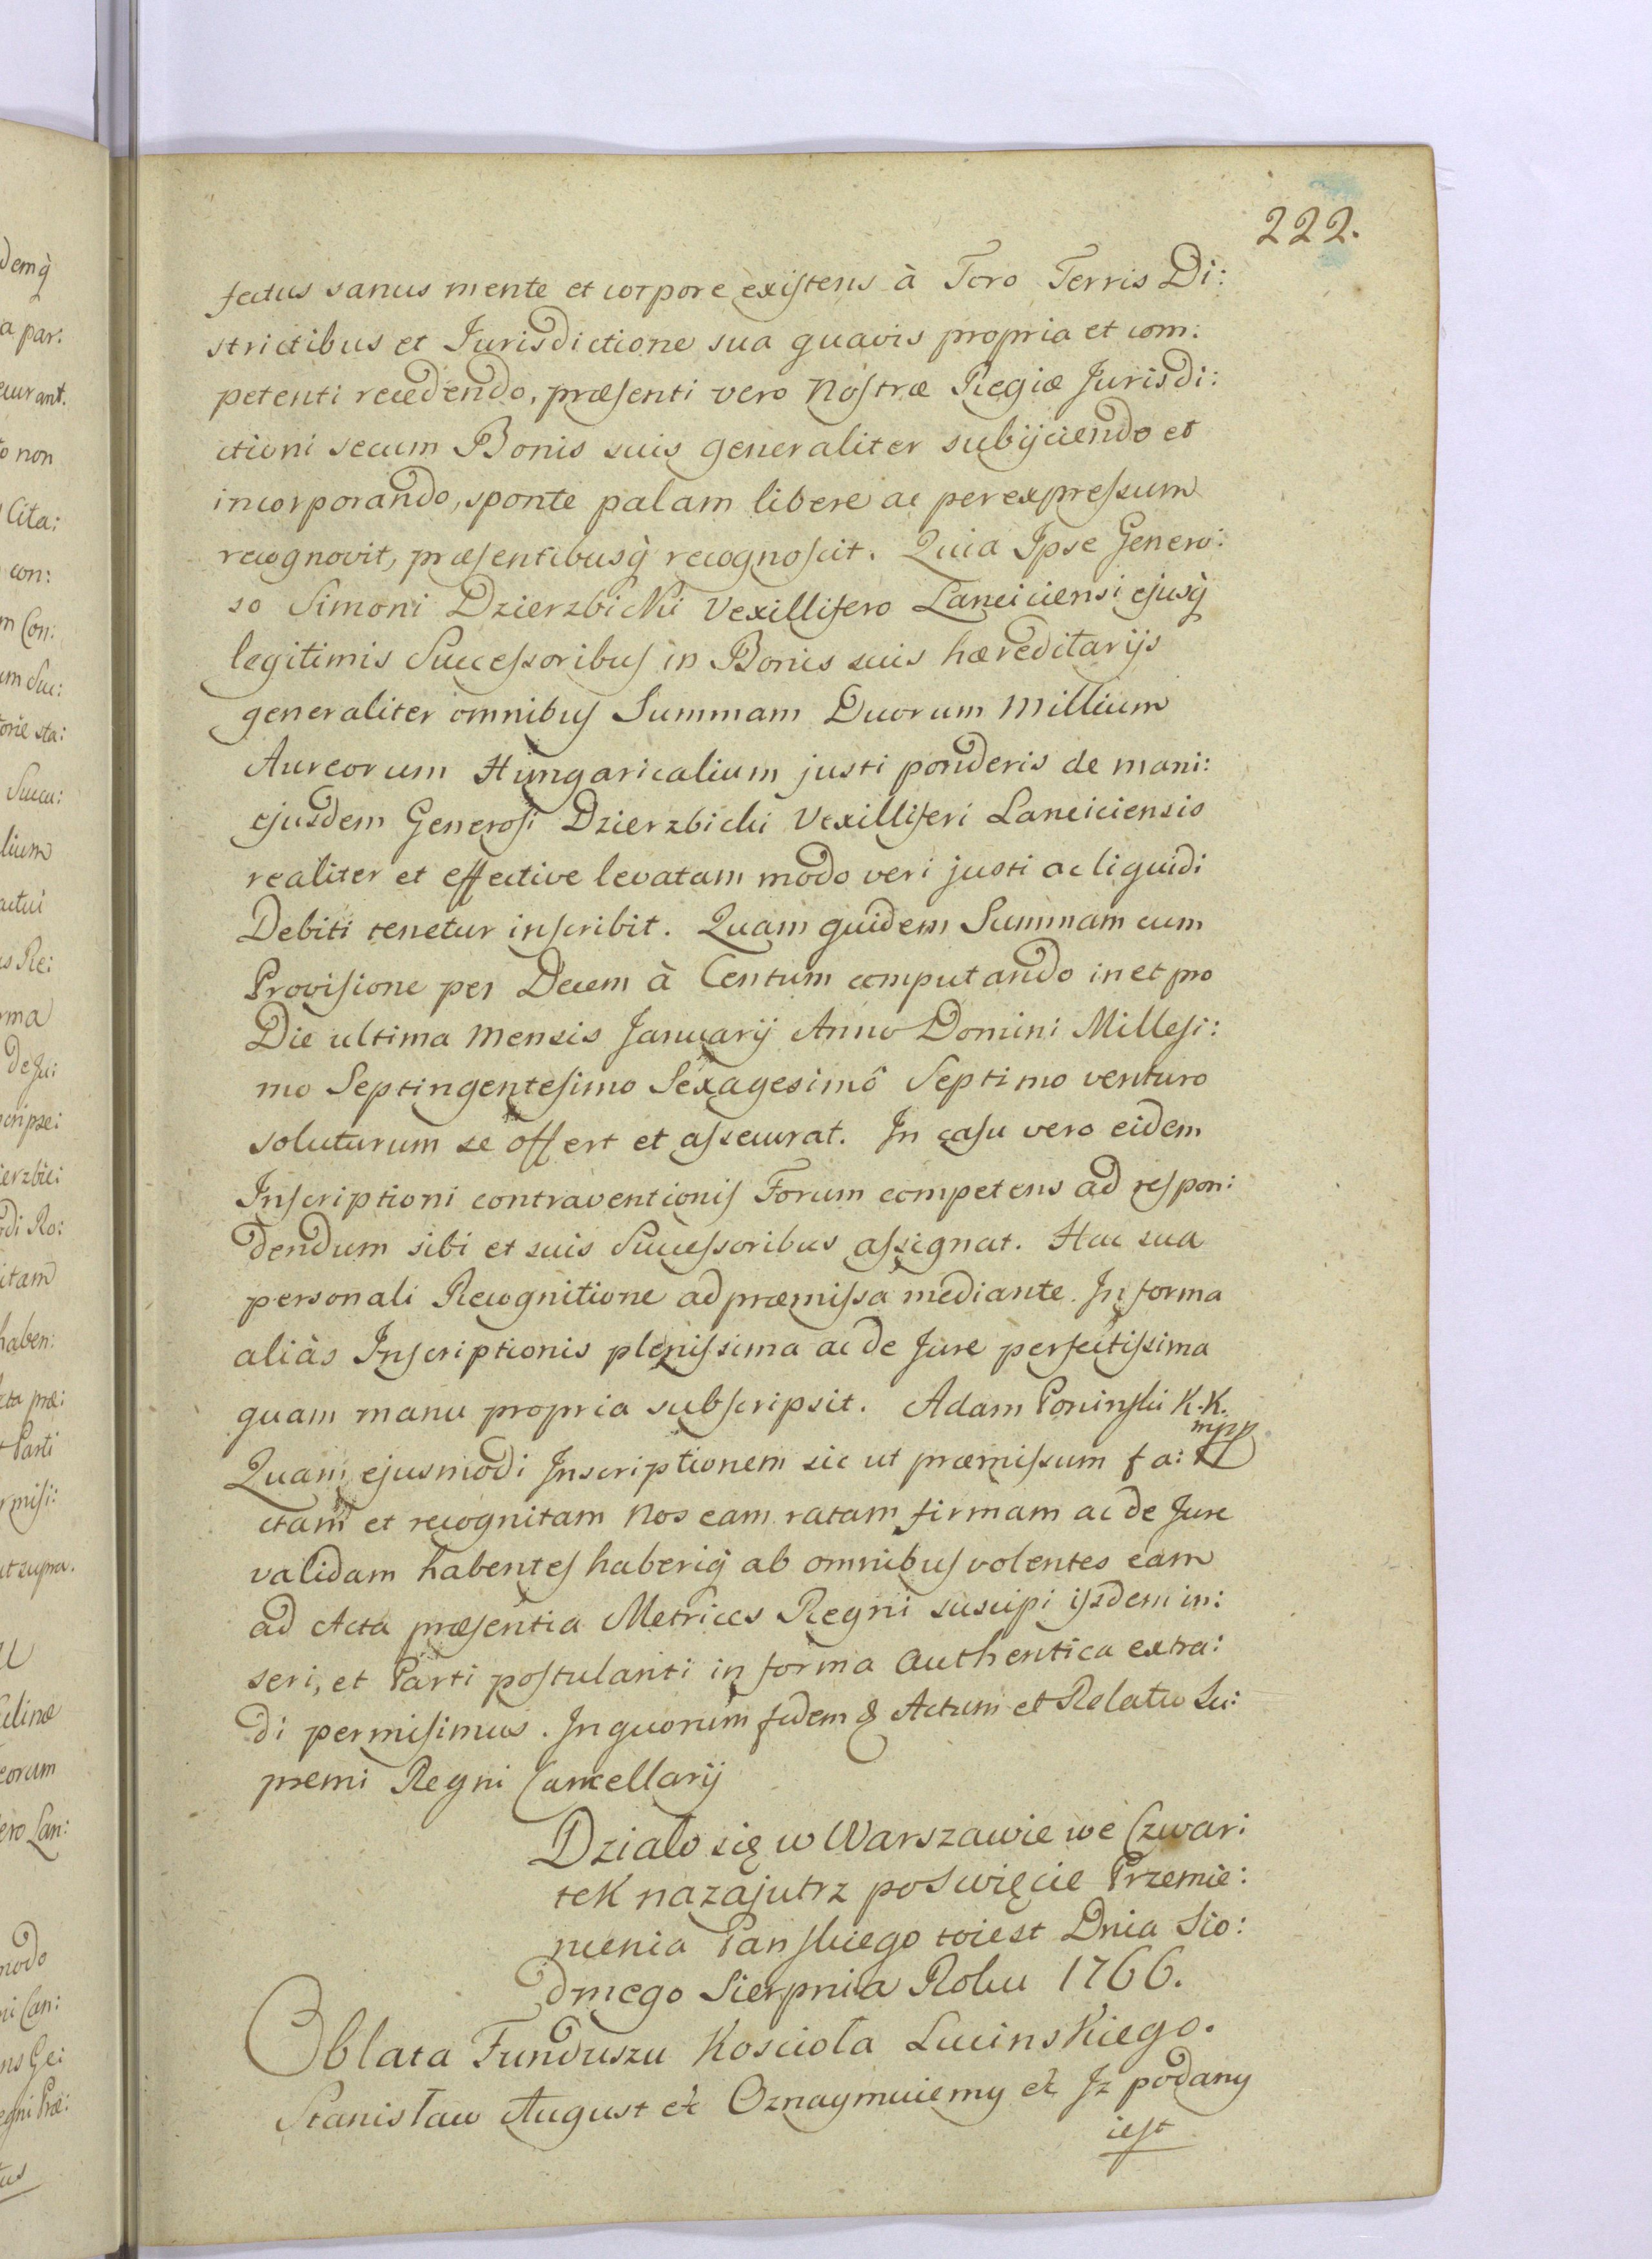 222.
fectus sanus mente et corpore existens à Foro Terris Di:
strictibus et Jurisdictione sua quavis propria et com:
petenti recedendo, præsenti vero Nostræ Regiæ Jurisdi:
ctioni secum Bonis suis generaliter subijciendo et
incorporando, sponte palam libere ac per expressum
recognovit, præsentibusq̀ recognoscit. Quia Ipse Genero:
so Simoni Dzierzbicki Vexillifero Lanciciensi ejusq̀
legitimis Successoribus in Bonis suis hæreditarijs
generaliter omnibus Summam Duorum Millium
Aureorum Hungaricalium justi ponderis de mani:
ejusdem Generosi Dzierzbicki Vexilliferi Lanciciensis
realiter et effective levatam modo veri justi ac liquidi
Debiti tenetur inscribit. Quam quidem Summam cum
Provisione per Decem à Centum computando in et pro
Die ultima mensis Januarij Anno Domini Millesi:
mo Septingentesimo Sexagesimô Septimo venturo
soluturum se offert et assecurat. In casu vero eidem
Inscriptioni contraventionis Forum competens ad respon:
dendum sibi et suis Successoribus assignat. Hac sua
personali Recognitione ad præmissa mediante. In forma
aliàs Inscriptionis plenissima ac de Jure perfectissima
quam manu propria subscripsit. Adam Poninski K.K.
mpp
Quam ejusmodi Inscriptionem sic ut præmissum fa:
ctam et recognitam Nos eam ratam firmam ac de Jure
validam habentes haberiq̀ ab omnibus volentes eam
ad Acta præsentia Metrices Regni suscipi ijsdem in:
seri, et Parti postulanti in forma authentica extra:
di permisimus. In quorum fidem & Actum et Relatio Su:
premi Regni Cancellarij
Działo się w Warszawie we Czwar:
tek nazajutrz poswięcie Przemie:
nienia Panskiego toiest Dnia Sio:
dmego Sierpnia Roku 1766.
Oblata Funduszu Koscioła Lucinskiego.
Stanisław August et Oznaymuiemy et Jz podany
iest